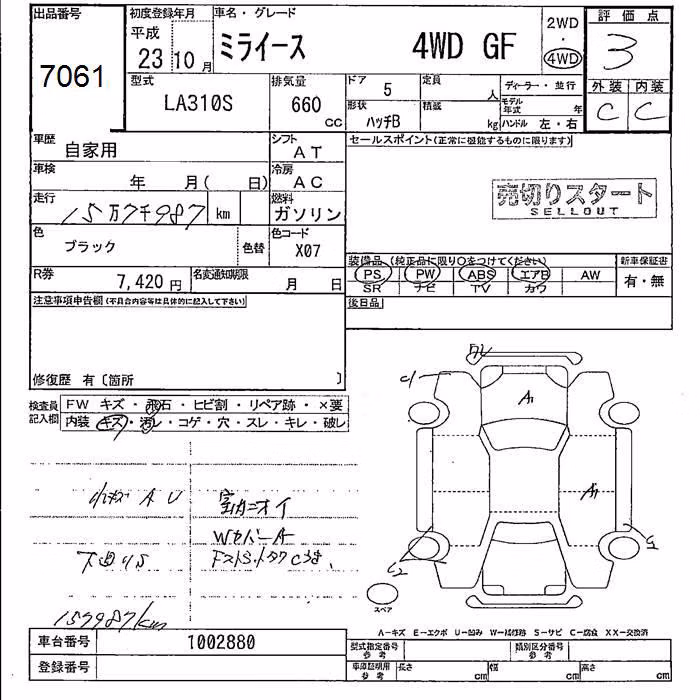 出品番号 初度登録年月 車名・グレード 2WD 評価点
7061 平成 23年 10月 ミライース 4WD GF ・ 4WD 3
型式 排気量 ドア 定員 ディーラー・並行 外装 内装
LA310S 660 cc 5 人 モデル年式 年 C C
形状 積載 ハッチB kg ハンドル 左・右
車歴 自家用 シフト AT セールスポイント(正常に機能するものに限ります)
車検 年 月( 日) 冷房 AC
売切りスタート
SELLOUT
走行 15万7千987 km 燃料 ガソリン
色 ブラック 色替 色コード X07
装備品 (純正品に限り○をつけてください) 新車保証書
PS PW ABS エアB AW 有・無
SR ナビ TV カワ
R券 7,420円 名変通知期限 月 日
注意事項申告欄(不具合内容等は具体的に記入して下さい) 後日品
修復歴 有〔箇所 〕
検査員記入欄 FW キズ・飛石・ヒビ割・リペア跡・×要
内装 キズ・汚レ・コゲ・穴・スレ・キレ・破レ
ワレ
C1
A1
A1
C2
C1
小キズ A U 室内ニオイ
WカバーA
下廻りS
157987km
スペア
A-キズ E-エクボ U-凹み W-補修跡 S-サビ C-腐食 XX-交換済
車台番号 1002880 型式指定番号 参考 類別区分番号 参考
登録番号 車庫証明用 参考 長さ cm 幅 cm 高さ cm